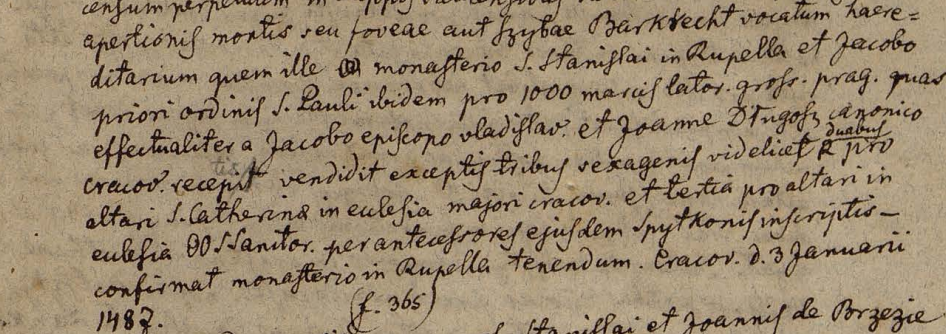 censum perpetuum in
apertionis montis seu foveae aut Szybae Barkrecht vocatum haere=
ditarium quem ille monasterio S. Stanislai in Rupella et Jacobo
priori ordinis S. Pauli ibidem pro 1000 marcis lator. gross. prag. quas
effectualiter a Jacobo episcopo vladislav. et Joanne Długosz canonico
cracov. recepit vendidit exceptis tribus sexagenis videlicet duabus pro
altari S. Catherinæ in eclesia majori cracov. et tertia pro altari in
eclesia OOSSanctor. per antecessores ejusdem Spytkonis inscriptis –
confirmat monasterio in Rupella tenendum. Cracov. d. 3 Januarii
1487. (f. 365)
Stanislai et Joannis de Brzezie